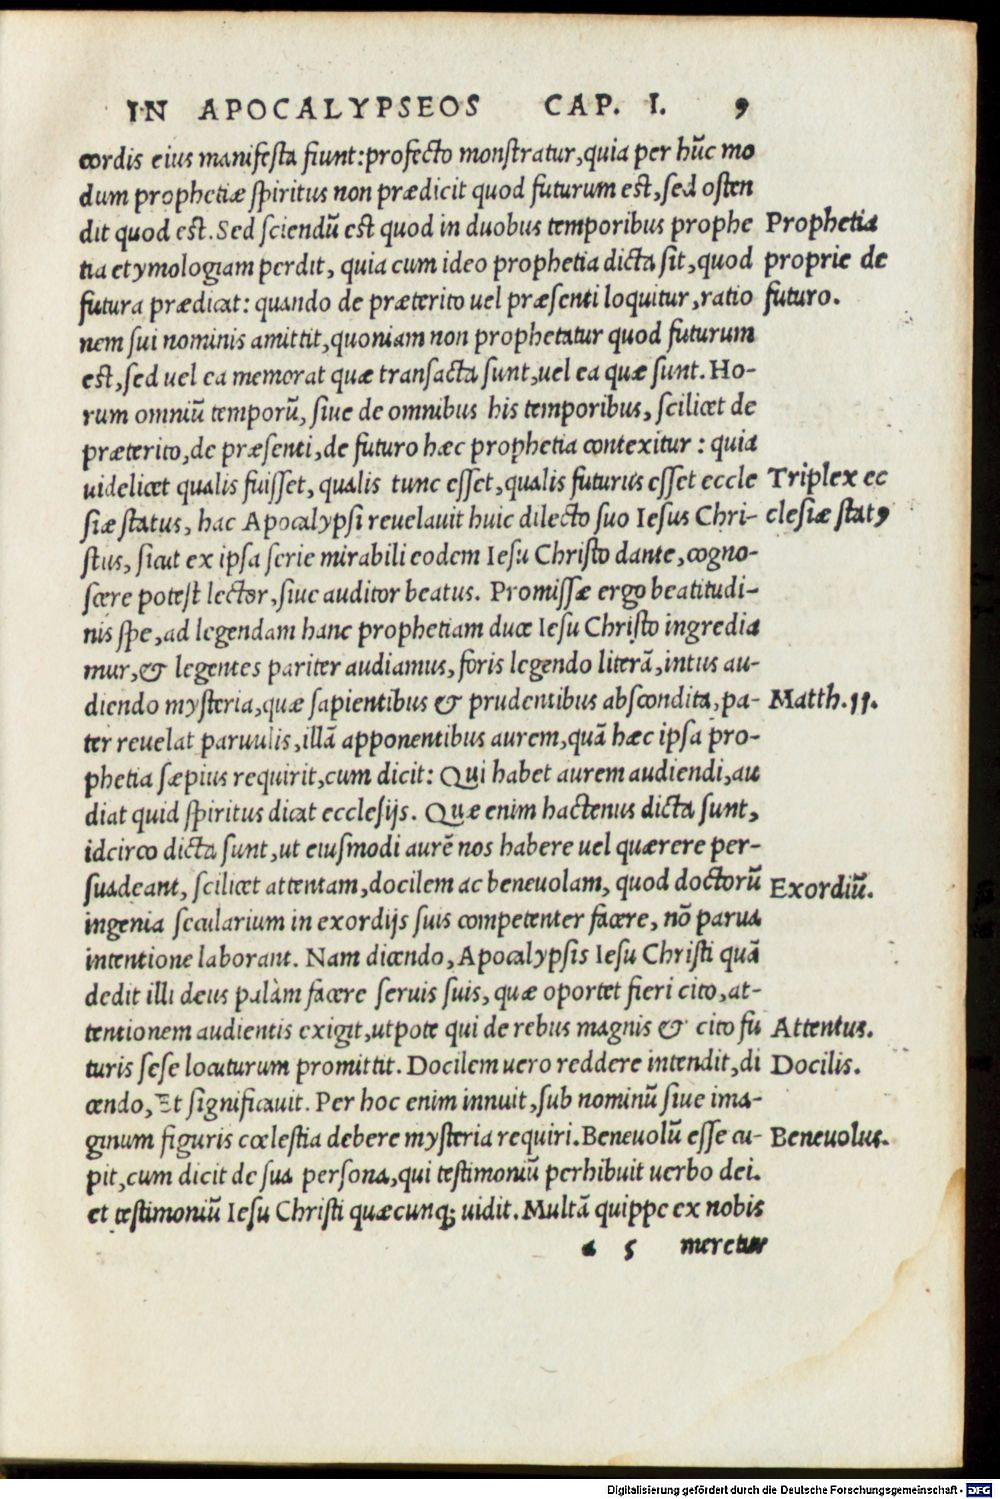 IN APOCALYPSEOS CAP. I. 9
cordis eius manifesta fiunt: profecto monstratur, quia per hūc mo
dum prophetiæ spiritus non prædicit quod futurum est, sed osten
dit quod est. Sed sciendū est quod in duobus temporibus prophe
tia etymologiam perdit, quia cum ideo prophetia dicta sit, quod
futura prædicat: quando de præterito uel præsenti loquitur, ratio
nem sui nominis amittit, quoniam non prophetatur quod futurum
est, sed uel ea memorat quæ transacta sunt, uel ea quæ sunt. Ho-
rum omniū temporū, siue de omnibus his temporibus, scilicet de
præterito, de præsenti, de futuro hæc prophetia contexitur: quia
uidelicet qualis fuisset, qualis tunc esset, qualis futurus esset eccle
siæ status, hac Apocalypsi reuelauit huic dilecto suo Iesus Chri-
stus, sicut ex ipsa serie mirabili eodem Iesu Christo dante, cogno-
scere potest lector, siue auditor beatus. Promissæ ergo beatitudi-
nis spe, ad legendam hanc prophetiam duce Iesu Christo ingredia
mur, & legentes pariter audiamus, foris legendo literā, intus au-
diendo mysteria, quæ sapientibus & prudentibus abscondita, pa-
ter reuelat paruulis, illā apponentibus aurem, quā hæc ipsa pro-
phetia sæpius requirit, cum dicit: Qui habet aurem audiendi, au
diat quid spiritus dicat ecclesijs. Quæ enim hactenus dicta sunt,
idcirco dicta sunt, ut eiusmodi aurē nos habere uel quærere per-
suadeant, scilicet attentam, docilem ac beneuolam, quod doctorū
ingenia secularium in exordijs suis competenter facere, nō parua
intentione laborant. Nam dicendo, Apocalypsis Iesu Christi quā
dedit illi deus palàm facere seruis suis, quæ oportet fieri cito, at-
tentionem audientis exigit, utpote qui de rebus magnis & cito fu
turis sese locuturum promittit. Docilem uero reddere intendit, di
cendo, Et significauit. Per hoc enim innuit, sub nominū siue ima-
ginum figuris cœlestia debere mysteria requiri. Beneuolū esse cu-
pit, cum dicit de sua persona, qui testimoniū perhibuit uerbo dei.
et testimoniū Iesu Christi quæcunq; uidit. Multā quippe ex nobis
a 5 meretur
Prophetia
proprie de
futuro.
Triplex ec
clesiæ statꝰ
Matth. 11.
Exordiū.
Attentus.
Docilis.
Beneuolus.
Digitalisierung gefördert durch die Deutsche Forschungsgemeinschaft - DFG